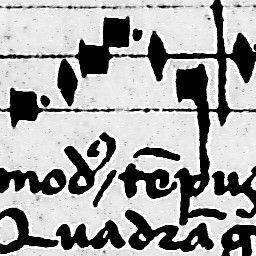 mod᷒ / tēpus
Quadrāg